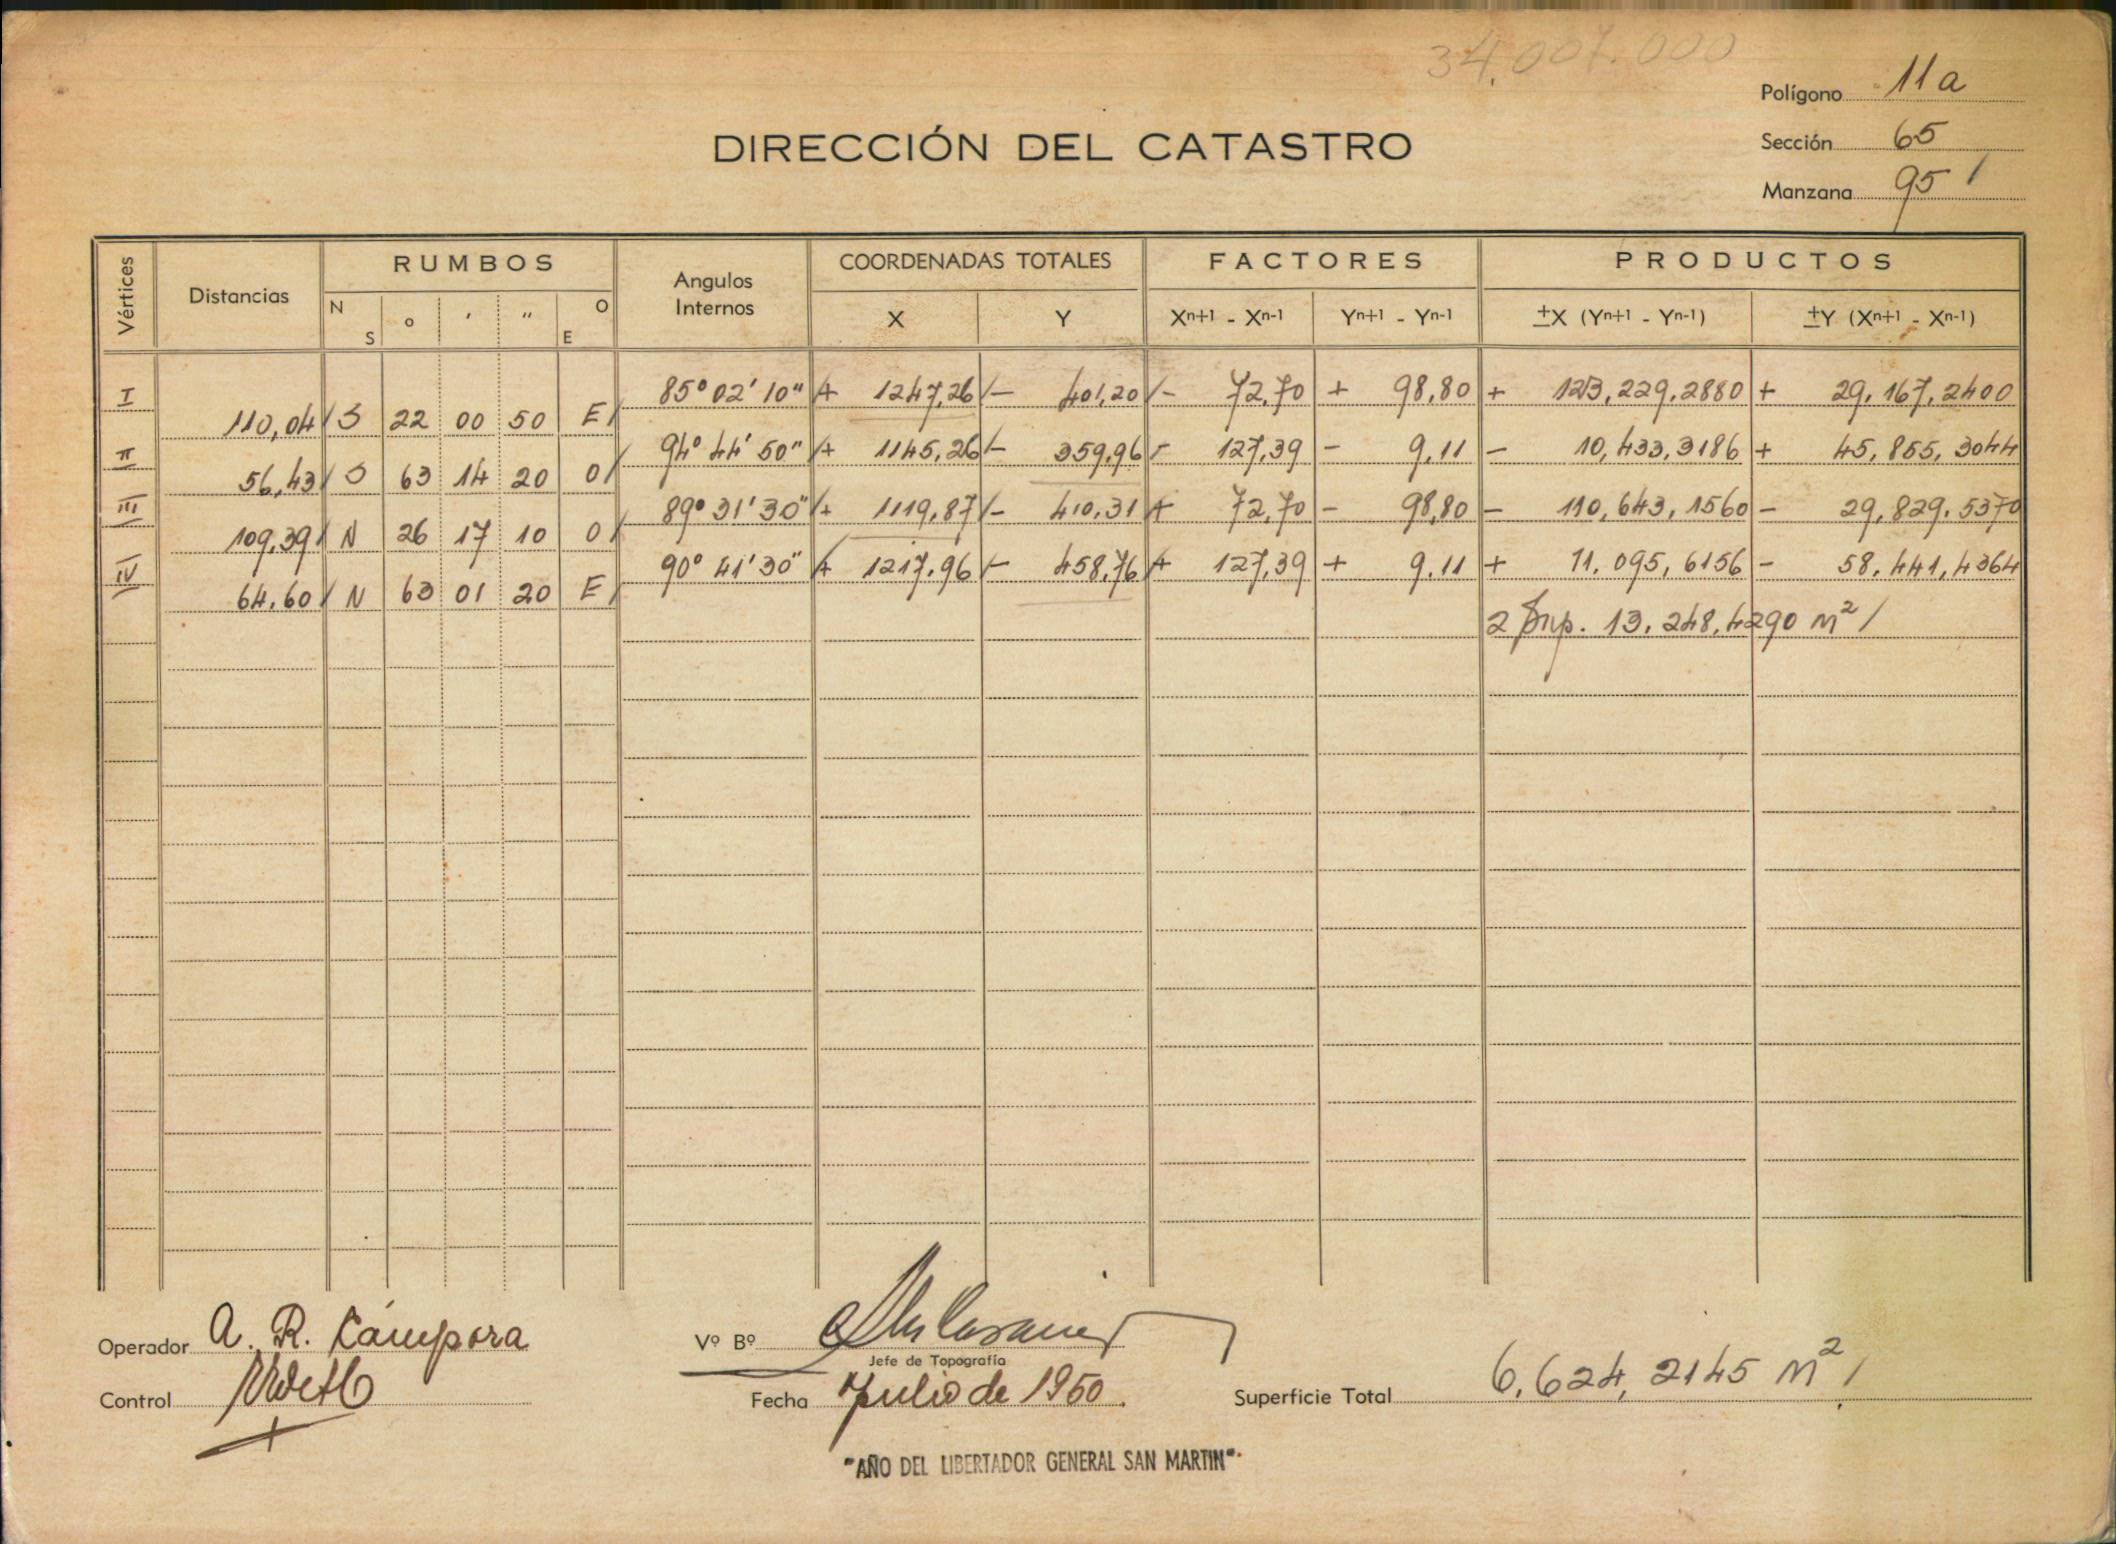 34.007.000
Polígono 11a
DIRECCIÓN DEL CATASTRO
Sección 65
Manzana 95 /
Vértices Distancias RUMBOS Angulos Internos COORDENADAS TOTALES FACTORES PRODUCTOS
N S o ′ ″ O E X Y Xn+1 - Xn-1 Yn+1 - Yn-1 ±X (Yn+1 - Yn-1) ±Y (Xn+1 - Xn-1)
I 85° 02' 10" + 1247,26 / - 401,20 / - 72,70 + 98,80 + 123,229,2880 + 29,167,2400
110,04 / S 22 00 50 E /
II 94° 44' 50" / + 1145,26 / - 359,96 - 127,39 - 9,11 - 10,433,3186 + 45,855,3044
56,43 / S 63 14 20 O /
III 89° 31' 30" / + 1119,87 / - 410,31 + 72,70 - 98,80 - 110,643,1560 - 29,829.5370
109,39 / N 26 17 10 O /
IV 90° 41' 30" / + 1217,96 / - 458,76 + 127,39 + 9.11 + 11.095,6156 - 58.441,4364
64,60 / N 63 01 20 E /
2 Sup. 13.248,4290 m² /
Operador A. R. Cámpora
Vº Bº
Jefe de Topografía
Control
Fecha Julio de 1950.
Superficie Total 6.624,2145 m² /
"AÑO DEL LIBERTADOR GENERAL SAN MARTIN"